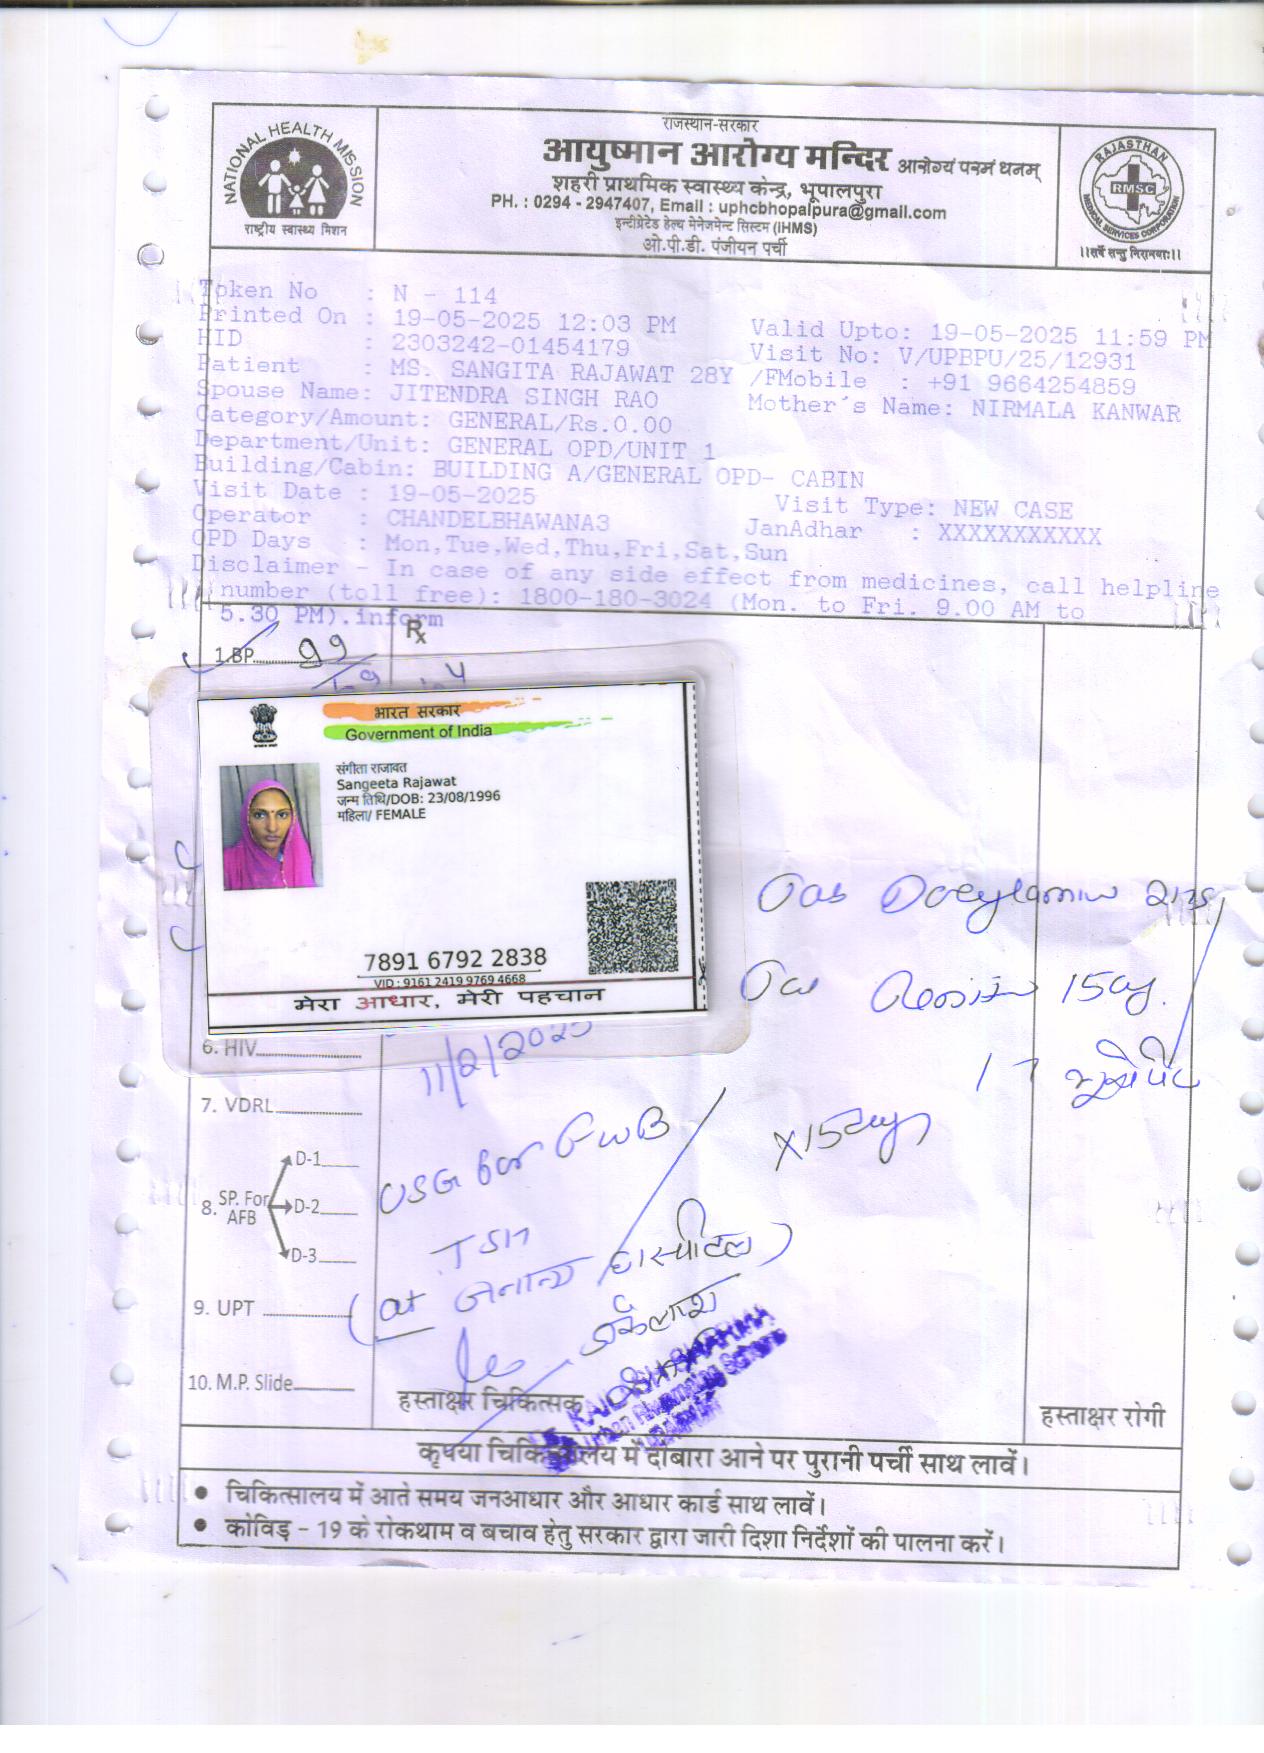 राजस्थान-सरकार
आयुष्मान आरोग्य मन्दिर आरोग्यं परमं धनम्
शहरी प्राथमिक स्वास्थ्य केन्द्र, भूपालपुरा
PH. : 0294 - 2947407, Email : uphcbhopalpura@gmail.com
इन्टीग्रेटेड हेल्थ मेनेजमेन्ट सिस्टम (iHMS)
ओ.पी.डी. पंजीयन पर्ची
NATIONAL HEALTH MISSION
राष्ट्रीय स्वास्थ्य मिशन
RAJASTHAN
RMSC
MEDICAL SERVICES CORPORATION
।।सर्वे सन्तु निरामयाः।।
Token No : N - 114
Printed On : 19-05-2025 12:03 PM Valid Upto: 19-05-2025 11:59 PM
HID : 2303242-01454179 Visit No: V/UPBPU/25/12931
Patient : MS. SANGITA RAJAWAT 28Y /FMobile : +91 9664254859
Spouse Name: JITENDRA SINGH RAO Mother's Name: NIRMALA KANWAR
Category/Amount: GENERAL/Rs.0.00
Department/Unit: GENERAL OPD/UNIT 1
Building/Cabin: BUILDING A/GENERAL OPD- CABIN
Visit Date : 19-05-2025 Visit Type: NEW CASE
Operator : CHANDELBHAWANA3 JanAdhar : XXXXXXXXXXX
OPD Days : Mon,Tue,Wed,Thu,Fri,Sat,Sun
Disclaimer - In case of any side effect from medicines, call helpline
number (toll free): 1800-180-3024 (Mon. to Fri. 9.00 AM to
5.30 PM).inform
Rx
1.BP 99
भारत सरकार
Government of India
संगीता राजावत
Sangeeta Rajawat
जन्म तिथि/DOB: 23/08/1996
महिला/ FEMALE
7891 6792 2838
VID : 9161 2419 9769 4668
मेरा आधार, मेरी पहचान
Doxylamin
15
6. HIV
11/2/2025
7. VDRL
USG for FWB
X 15 day
8. SP. For AFB
D-1
D-2
D-3
TSH
(at जनाना हास्पीटल)
9. UPT
10. M.P. Slide
हस्ताक्षर चिकित्सक
हस्ताक्षर रोगी
कृपया चिकित्सालय में दोबारा आने पर पुरानी पर्ची साथ लावें।
● चिकित्सालय में आते समय जनआधार और आधार कार्ड साथ लावें।
● कोविड़ – 19 के रोकथाम व बचाव हेतु सरकार द्वारा जारी दिशा निर्देशों की पालना करें।